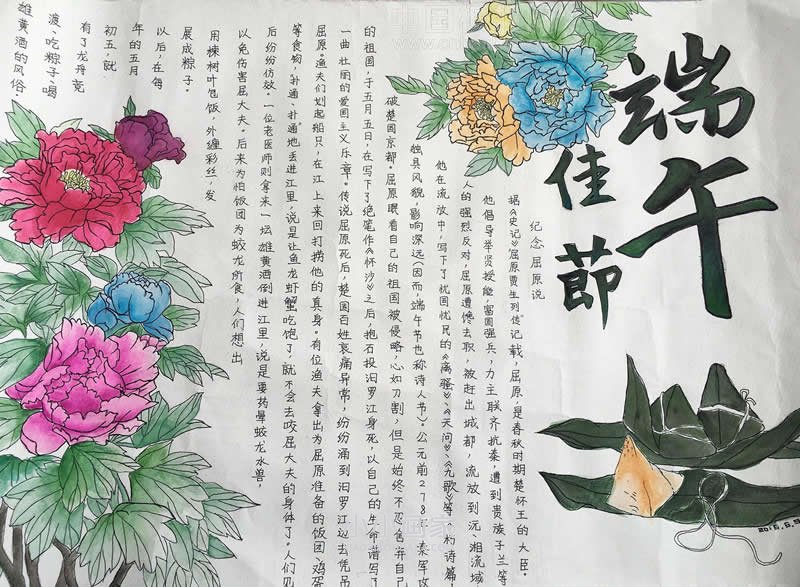 端午
佳節
纪念屈原说
据《史记》屈原贾生列传记载，屈原，是春秋时期楚怀王的大臣。
他倡导举贤授能，富国强兵，力主联齐抗秦，遭到贵族子兰等
人的强烈反对，屈原遭馋去职，被赶出城都，流放到沅、湘流域
他在流放中，写下了忧国忧民的《离骚》《天问》《九歌》等不朽诗篇，
独具风貌，影响深远（因而，端午节也称诗人节）。公元前278年，秦军攻
破楚国京都。屈原眼看自己的祖国被侵略，心如刀割，但是始终不忍舍弃自己
的祖国，于五月五日，在写下了绝笔作《怀沙》之后，抱石投汨罗江身死，以自己的生命谱写了
一曲壮丽的爱国主义乐章。传说屈原死后，楚国百姓哀痛异常，纷纷涌到汨罗江边去凭吊
屈原。渔夫们划起船只，在江上来回打捞他的真身。有位渔夫拿出为屈原准备的饭团、鸡蛋
等食物，扑通、扑通地丢进江里，说是让鱼龙虾蟹吃饱了，就不会去咬屈大夫的身体了。人们见
后纷纷仿效。一位老医师则拿来一坛雄黄酒倒进江里，说是要药晕蛟龙水兽，
以免伤害屈大夫。后来为怕饭团为蛟龙所食，人们想出
用楝树叶包饭，外缠彩丝，发
展成粽子。
以后，在每
年的五月
初五，就
有了龙舟竞
渡、吃粽子、喝
雄黄酒的风俗。